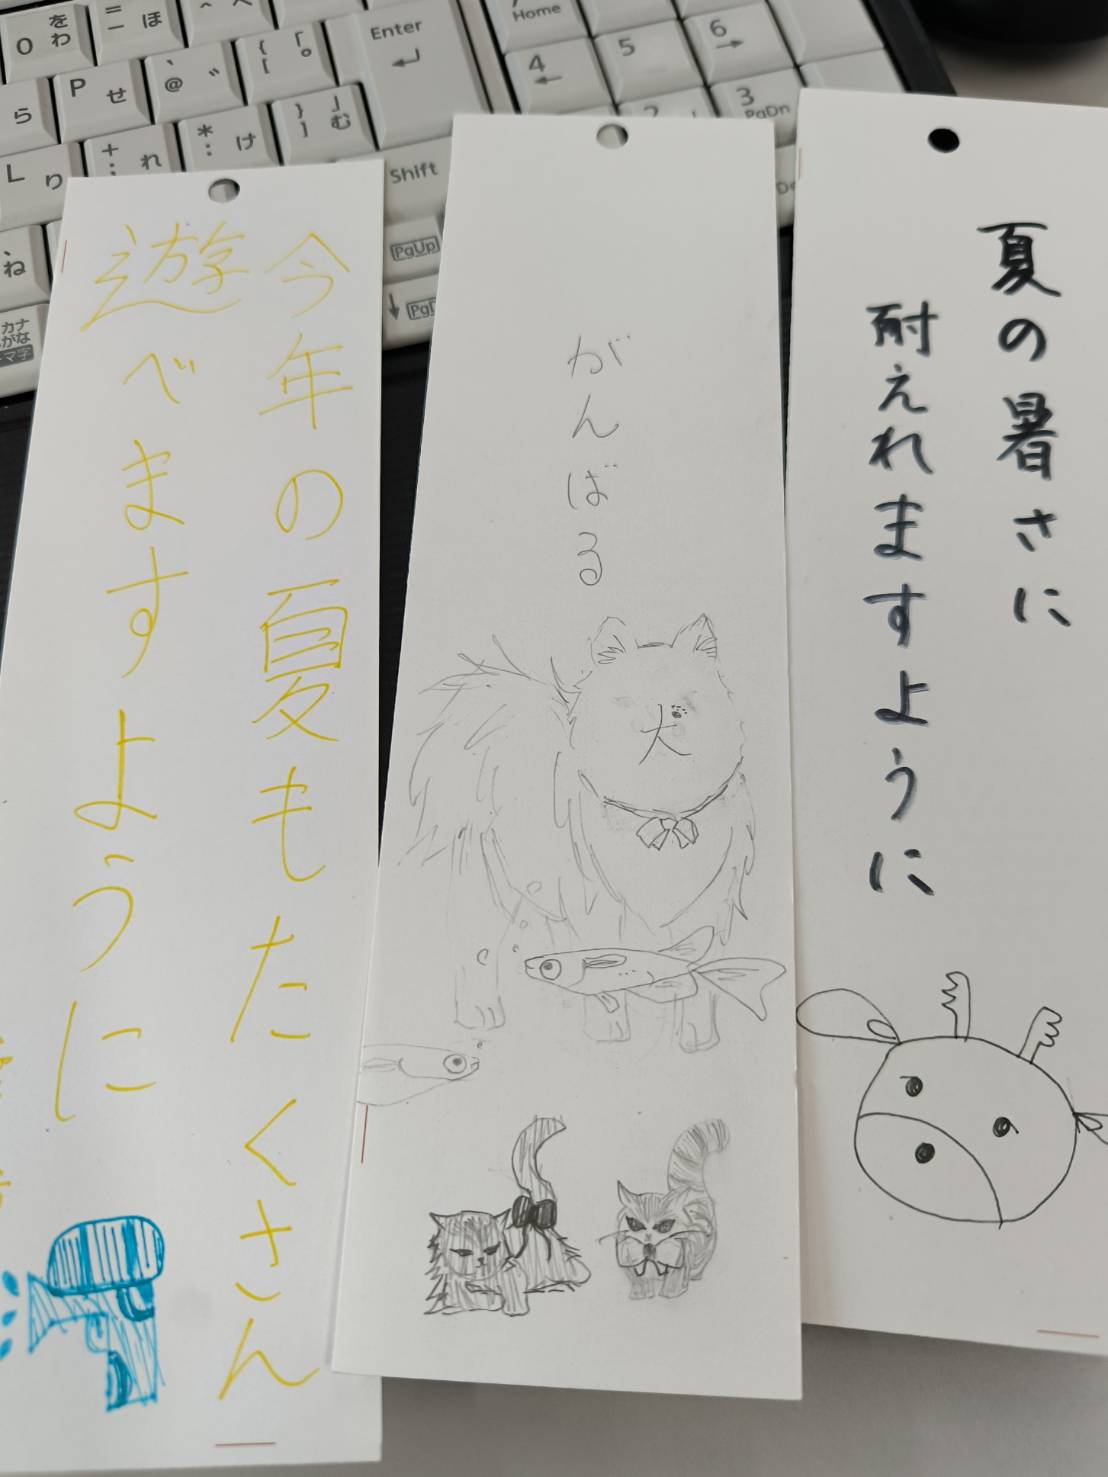 今年の夏もたくさん
遊べますように
がんばる
犬
夏の暑さに
耐えれますように
0 を わ
= - ほ
^ へ
ら
P せ
@ ゛
{ [ 「 ゜
Enter
Home
4
5
6
2
3 PgDn
L り
+ ; れ
* : け
} ] 」 む
Shift
PgUp
ね
カナ